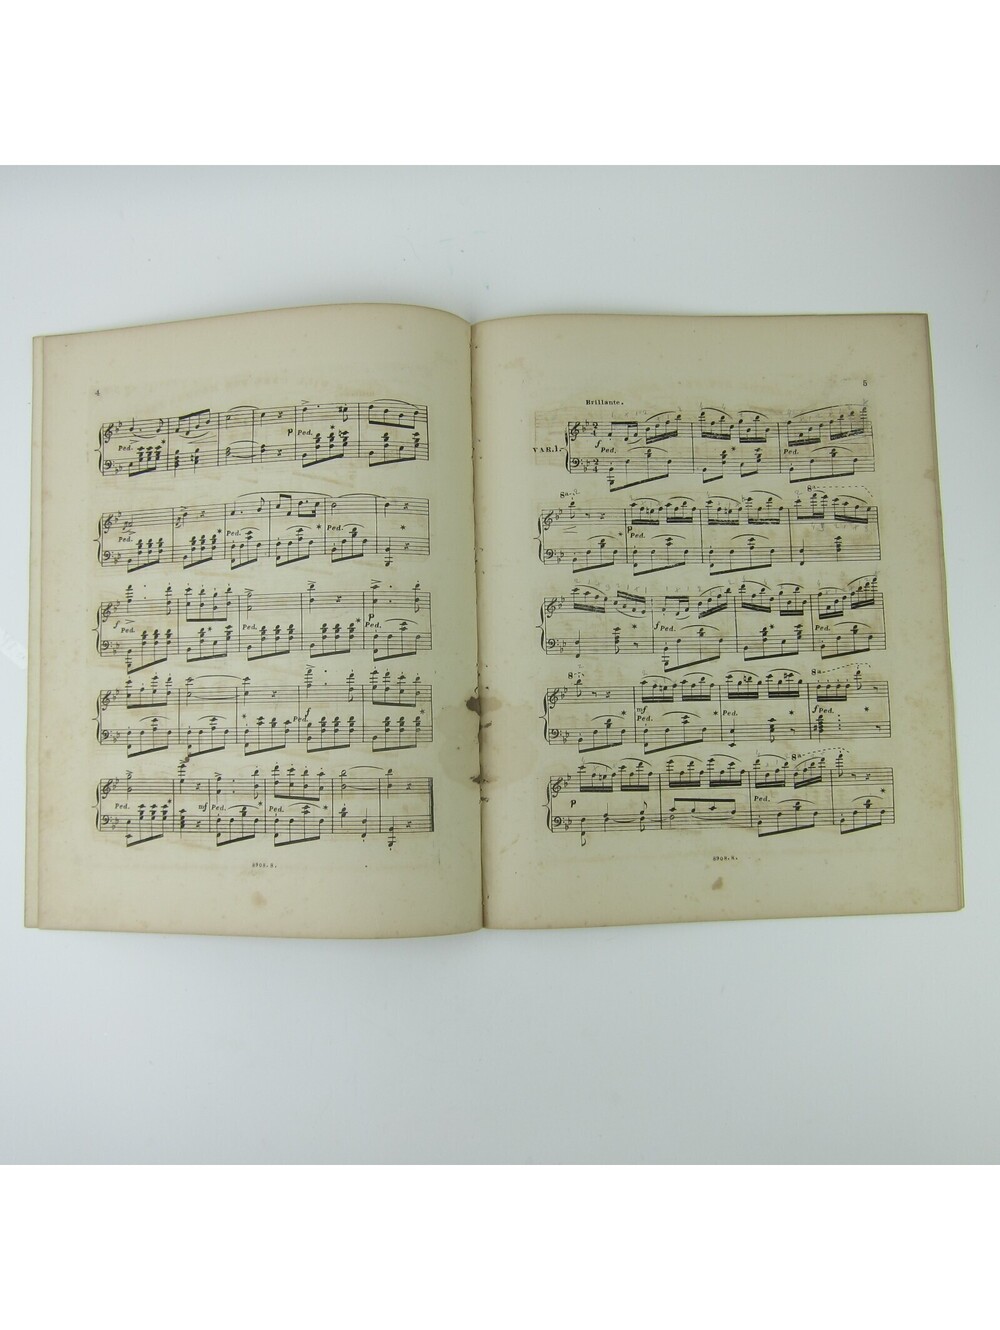 4
Ped.
p Ped.
Ped.
Ped.
Ped.
Ped.
f Ped.
Ped.
p
Ped.
Ped.
f
Ped.
mf
Ped.
Ped.
5
Brillante.
VAR.1.
f
Ped.
Ped.
8a
8a
p
Ped.
Ped.
f Ped.
8a
8a
mf
Ped.
Ped.
f Ped.
8a
p
Ped.